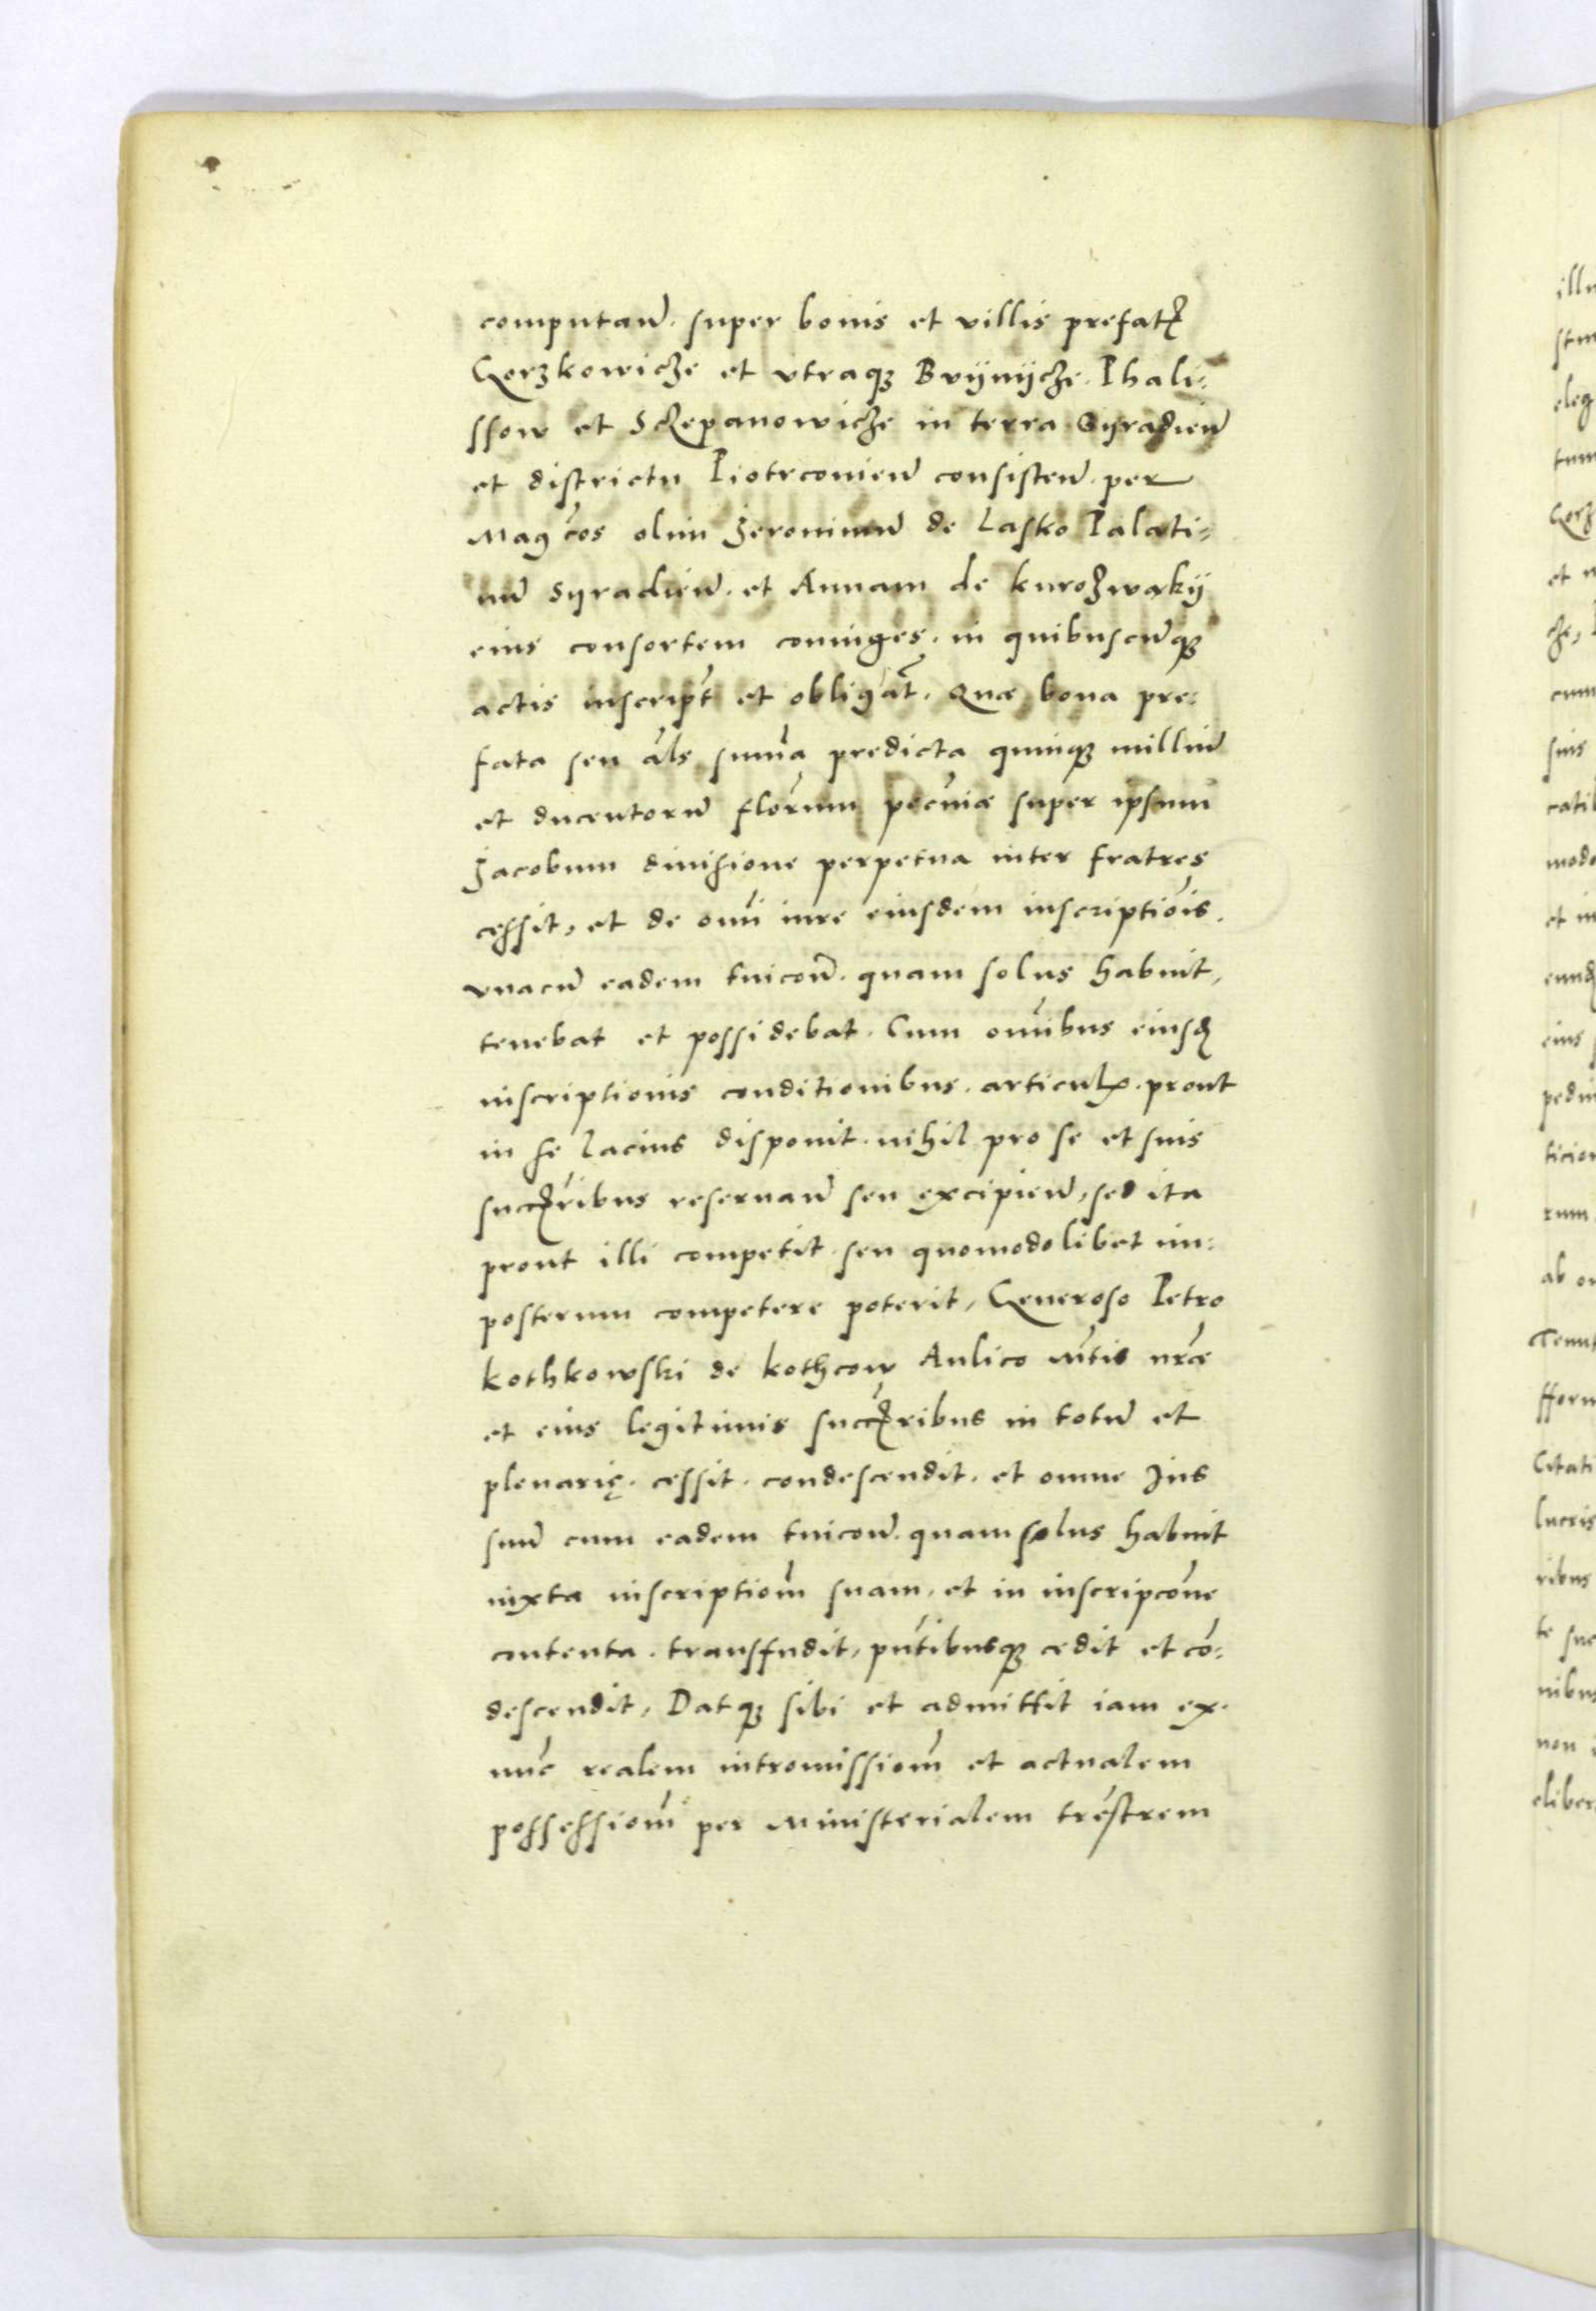 computan̄. super bonis et villis prefat̨
Gorzkowicze et vtraqꝫ Bvÿnÿcze. Phali-
ssow et Sczepanowicze in terra Syradien̄
et districtu Piotrconien̄ consisten̄. per
Magc̄os olim Jeronimū de Lasko Palati-
nū Syradien̄. et Annam de kurozwakÿ
eius consortem coniuges. in quibuscūqꝫ
actis inscript̄ et obligat̄. Quæ bona pre-
fata seu al̄s sum̄a predicta quinqꝫ milliū
et ducentorū flor̄enum pec̄uniæ super ipsum
Jacobum diuisione perpetua inter fratres
cessit, et de om̄i iure eiusdem inscriptiōis.
vnacū eadem tuicoīe. quam solus habuit,
tenebat et possidebat. Cum om̄ibus eiusd̨
inscriptionis conditionibus. articulis. prout
in se lacius disponit. nihil pro se et suis
succ̨r̄ibus reseruan̄ seu excipien̄, sed ita
prout illi competit. seu quomodolibet im-
posterum competere poterit, Generoso Petro
kothkowski de kothcow Aulico Mt̄is nr̄æ
et eius legitimis succ̨r̄ibus in totū et
plenarię. cessit. condescendit. et omne Jus
suū cum eadem tuicoīe. quam solus habuit
iuxta inscriptiōm suam. et in inscripcōne
contenta. transfudit, pn̄tibusqꝫ cedit et cō-
descendit, Datqꝫ sibi et admittit iam ex.
nūc realem intromissiōm et actualem
possessiōm per Ministerialem tr̄estrem